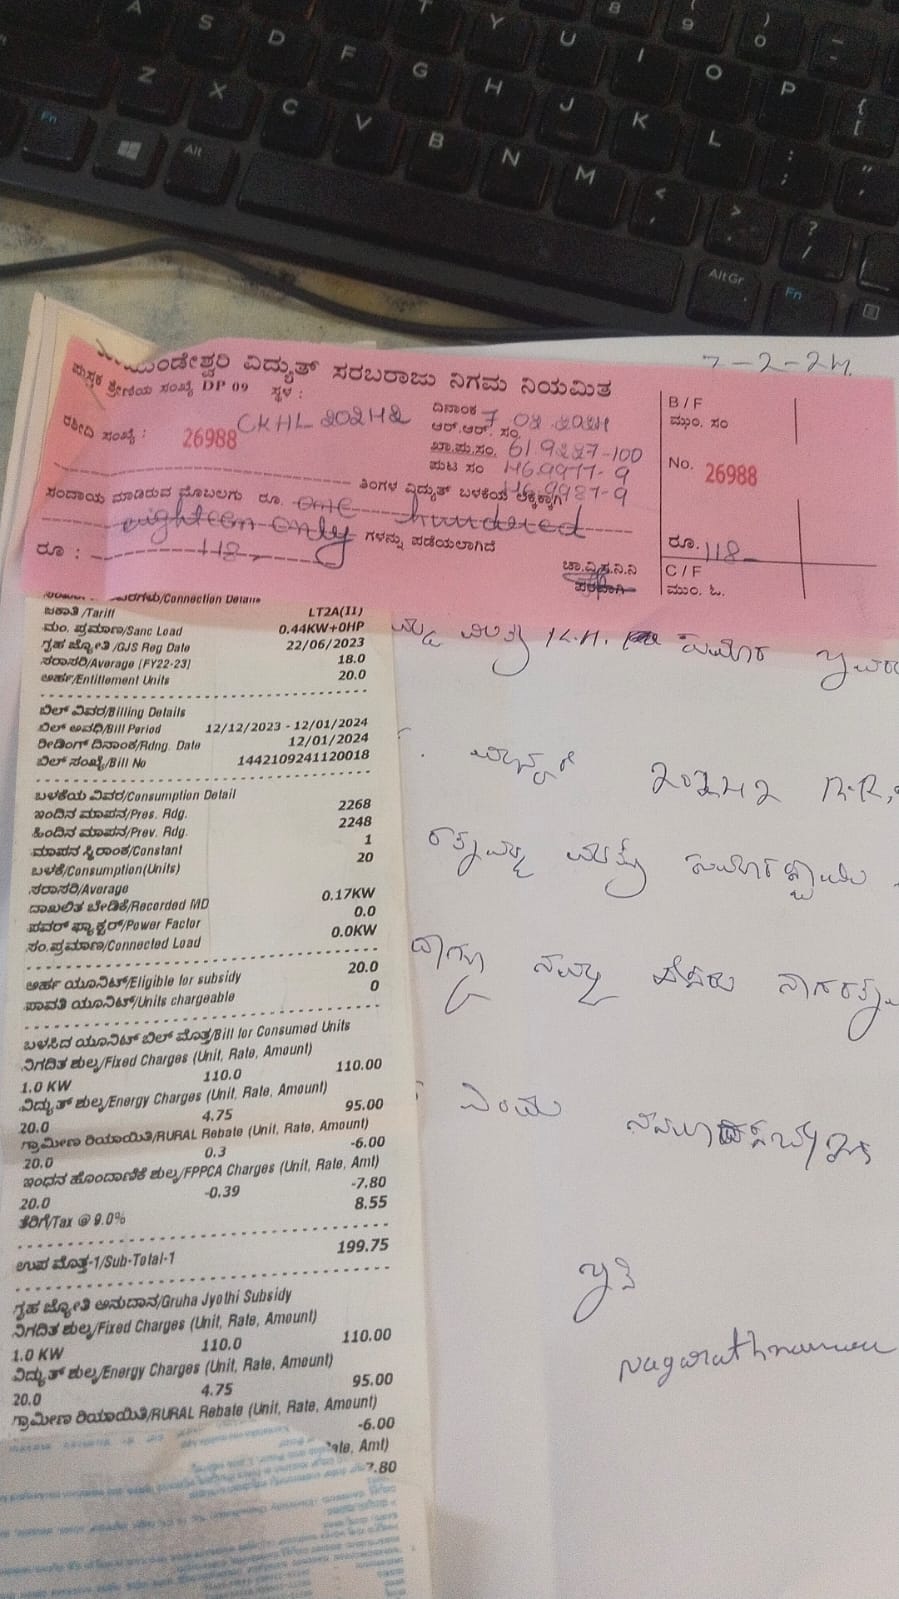 7-2-24
ವಿದ್ಯುತ್ ಸರಬರಾಜು ನಿಗಮ ನಿಯಮಿತ
ಪುಸ್ತಕ ಶ್ರೇಣಿಯ ಸಂಖ್ಯೆ DP 09 ಸ್ಥಳ :
ರಶೀದಿ ಸಂಖ್ಯೆ : 26988 CKHL 20242
ದಿನಾಂಕ 7 02 2024
ಆರ್.ಆರ್. ಸಂ.
ಖಾ.ಪು.ಸಂ. 619227-100
ಪುಟ ಸಂ 46.9977-9
46.9987-9
ತಿಂಗಳ ವಿದ್ಯುತ್ ಬಳಕೆಯ ಲೆಕ್ಕಕ್ಕಾಗಿ
ಸಂದಾಯ ಮಾಡಿರುವ ಮೊಬಲಗು ರೂ. one hundred
eighteen only ಗಳನ್ನು ಪಡೆಯಲಾಗಿದೆ
ರೂ : 118
ಚಾ.ವಿ.ಸ.ನಿ.ನಿ
ಪರವಾಗಿ
B / F
ಮು. ಸಂ
No. 26988
ರೂ. 118
C / F
ಮುಂ. ಓ.
/Connection Details
ಜಕಾತಿ /Tariff LT2A(II)
ಮಂ. ಪ್ರಮಾಣ/Sanc Load 0.44KW+0HP
ಗೃಹ ಜ್ಯೋತಿ /GJS Reg Date 22/06/2023
ಸರಾಸರಿ/Average (FY22-23) 18.0
ಅರ್ಹ/Entitlement Units 20.0
ಬಿಲ್ ವಿವರ/Billing Details
ಬಿಲ್ ಅವಧಿ/Bill Period 12/12/2023 - 12/01/2024
ರೀಡಿಂಗ್ ದಿನಾಂಕ/Rdng. Date 12/01/2024
ಬಿಲ್ ಸಂಖ್ಯೆ/Bill No 1442109241120018
ಬಳಕೆಯ ವಿವರ/Consumption Detail
ಇಂದಿನ ಮಾಪನ/Pres. Rdg. 2268
ಹಿಂದಿನ ಮಾಪನ/Prev. Rdg. 2248
ಮಾಪನ ಸ್ಥಿರಾಂಕ/Constant 1
ಬಳಕೆ/Consumption(Units) 20
ಸರಾಸರಿ/Average
ದಾಖಲಿತ ಬೇಡಿಕೆ/Recorded MD 0.17KW
ಪವರ್ ಫ್ಯಾಕ್ಟರ್/Power Factor 0.0
ಸಂ.ಪ್ರಮಾಣ/Connected Load 0.0KW
ಅರ್ಹ ಯೂನಿಟ್/Eligible for subsidy 20.0
ಪಾವತಿ ಯೂನಿಟ್/Units chargeable 0
ಬಳಸಿದ ಯೂನಿಟ್ ಬಿಲ್ ಮೊತ್ತ/Bill for Consumed Units
ನಿಗದಿತ ಶುಲ್ಕ/Fixed Charges (Unit, Rate, Amount)
1.0 KW 110.0 110.00
ವಿದ್ಯುತ್ ಶುಲ್ಕ/Energy Charges (Unit, Rate, Amount)
20.0 4.75 95.00
ಗ್ರಾಮೀಣ ರಿಯಾಯಿತಿ/RURAL Rebate (Unit, Rate, Amount)
20.0 0.3 -6.00
ಇಂಧನ ಹೊಂದಾಣಿಕೆ ಶುಲ್ಕ/FPPCA Charges (Unit, Rate, Amt)
20.0 -0.39 -7.80
ತೆರಿಗೆ/Tax @ 9.0% 8.55
ಉಪ ಮೊತ್ತ-1/Sub-Total-1 199.75
ಗೃಹ ಜ್ಯೋತಿ ಅನುದಾನ/Gruha Jyothi Subsidy
ನಿಗದಿತ ಶುಲ್ಕ/Fixed Charges (Unit, Rate, Amount)
1.0 KW 110.0 110.00
ವಿದ್ಯುತ್ ಶುಲ್ಕ/Energy Charges (Unit, Rate, Amount)
20.0 4.75 95.00
ಗ್ರಾಮೀಣ ರಿಯಾಯಿತಿ/RURAL Rebate (Unit, Rate, Amount)
-6.00
Amt)
7.80
20242
ಎಂದು
Nagarathnamma